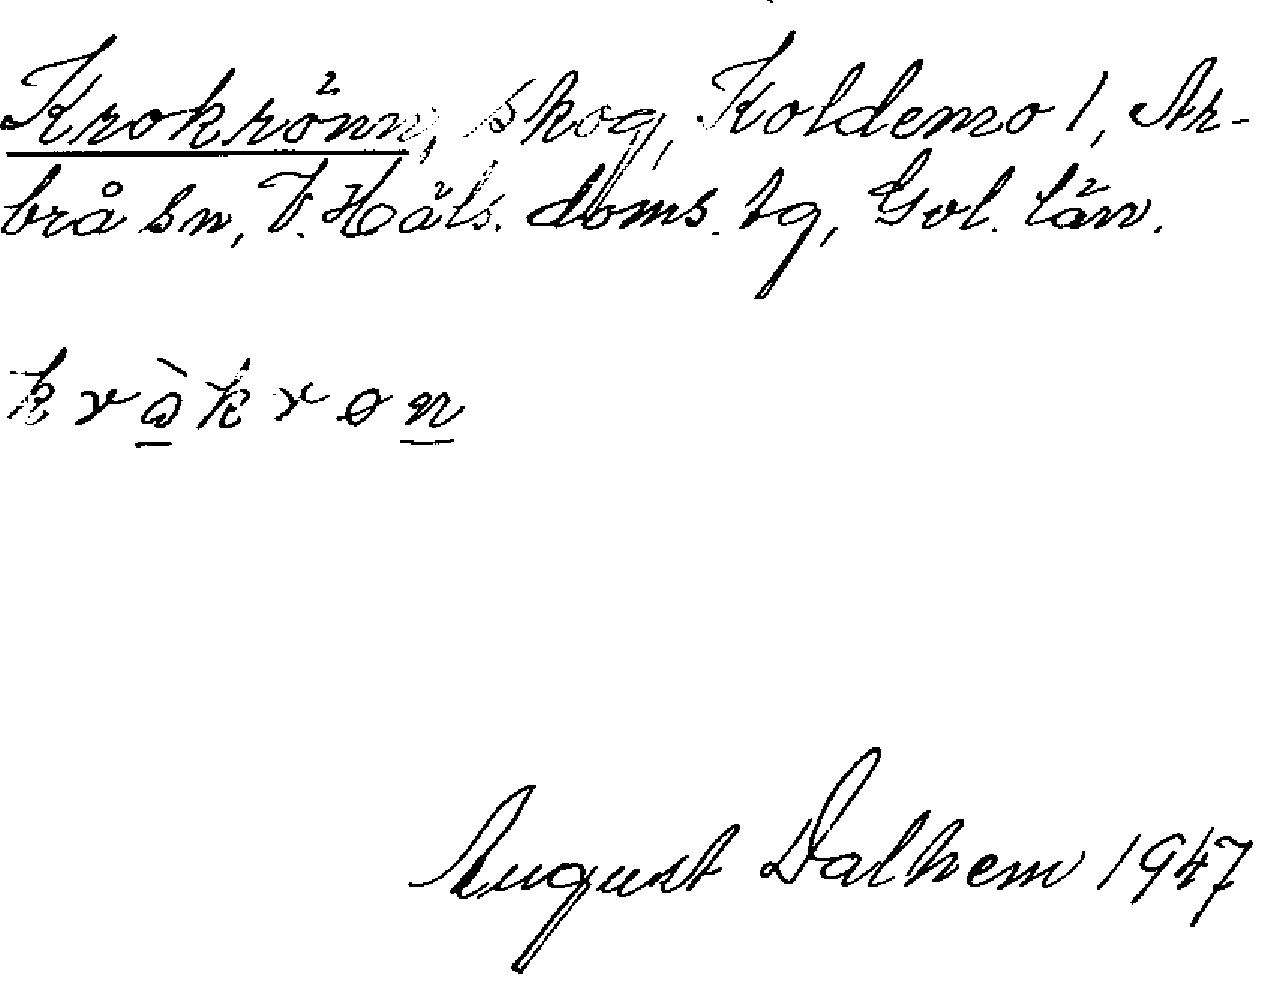 Krokrönn, skog, Koldemo 1, Ar-
brå sn, V. Häls. doms. tg, Gvl. län.
August Dalhem 1947